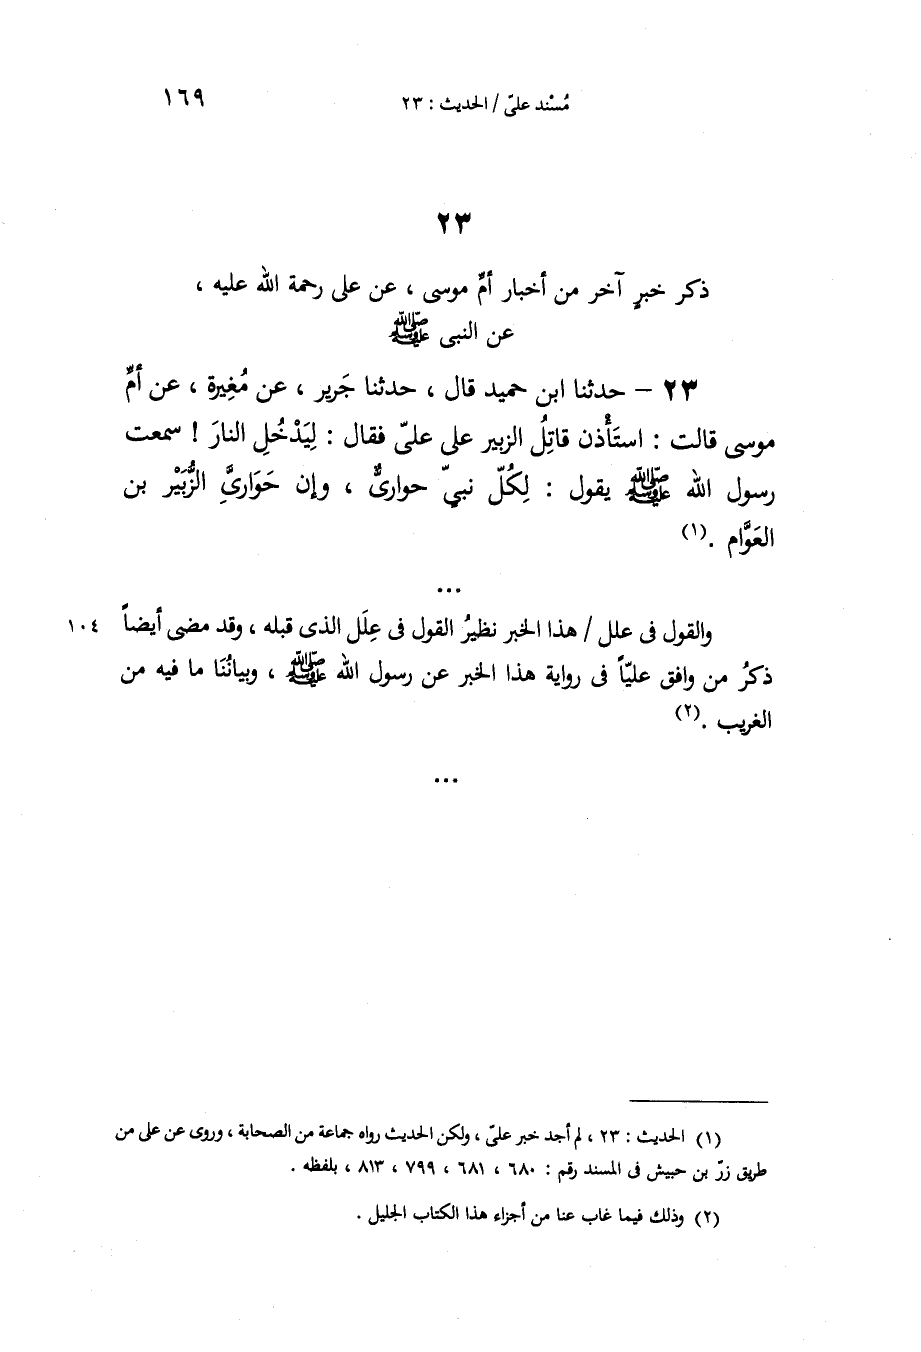 مُسْند علىّ / الحديث : ٢٣ ١٦٩
٢٣
ذكر خبرٍ آخر من أخبار أمِّ موسى ، عن على رحمة الله عليه ،
عن النبى ﷺ
٢٣ – حدثنا ابن حميد قال ، حدثنا جَرير ، عن مُغِيرة ، عن أمِّ
موسى قالت : استَأْذن قاتِلُ الزبير على علىّ فقال : لِيَدْخُلِ النارَ ! سمعت
رسول الله ﷺ يقول : لِكُلّ نبيّ حوارىٌّ ، وإن حَوَارىَّ الزُّبَيْر بن
العَوَّام .(١)
...
والقول فى علل / هذا الخبر نظيرُ القول فى عِلَل الذى قبله ، وقد مضى أيضاً ١٠٤
ذكرُ من وافق عليّاً فى رواية هذا الخبر عن رسول الله ﷺ ، وبيانُنَا ما فيه من
الغريب .(٢)
...
(١) الحديث : ٢٣ ، لم أجد خبر علىّ ، ولكن الحديث رواه جماعة من الصحابة ، وروى عن على من
طريق زرّ بن حبيش فى المسند رقم : ٦٨٠ ، ٦٨١ ، ٧٩٩ ، ٨١٣ ، بلفظه .
(٢) وذلك فيما غاب عنا من أجزاء هذا الكتاب الجليل .